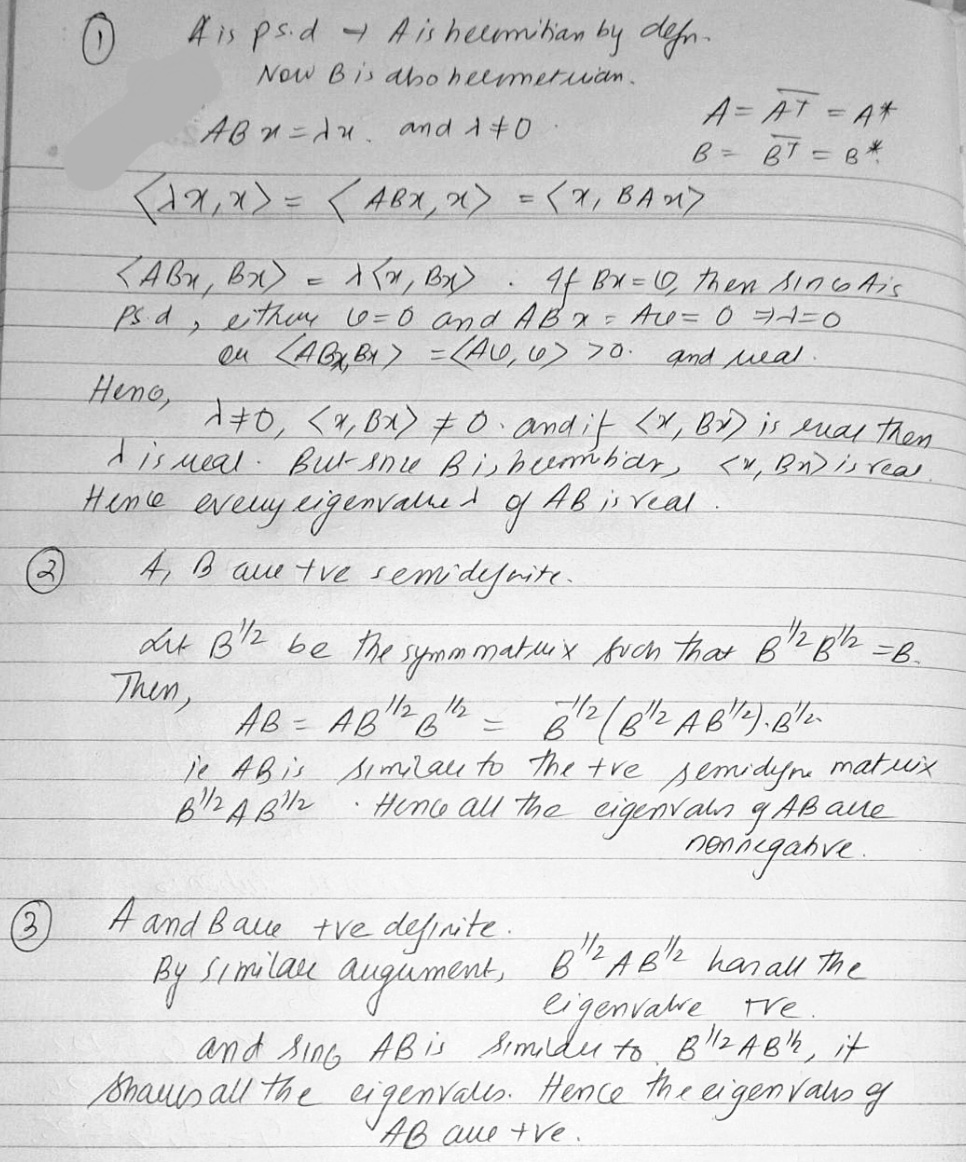 ① A is p.s.d → A is heermitian by defn.
Now B is also heermetuian.
ABx = λx. and λ≠0.
A = \overline{A^T} = A*
B = \overline{B^T} = B*.
⟨λx, x⟩ = ⟨ABx, x⟩ = ⟨x, BAx⟩
⟨ABx, Bx⟩ = λ⟨x, Bx⟩. If Bx = υ, then since A is
ps.d, either υ=0 and ABx = Aυ = 0 ⇒ λ=0
or ⟨ABx, Bx⟩ = ⟨Aυ, υ⟩ >0. and real.
Hence,
λ≠0, ⟨x, Bx⟩ ≠ 0. and if ⟨x, Bx⟩ is real then
λ is real. But since B is heermitian, ⟨x, Bx⟩ is real.
Hence every eigenvalue λ of AB is real.
② A, B are +ve semidefinite.
Let B^{1/2} be the symm matrix such that B^{1/2} B^{1/2} = B.
Then,
AB = AB^{1/2} B^{1/2} = B^{-1/2}(B^{1/2} A B^{1/2}).B^{1/2}.
ie AB is similar to the +ve semidefne matrix
B^{1/2} A B^{1/2}. Hence all the eigenvalues of AB are
nonnegative.
③ A and B are +ve definite.
By similar augument, B^{1/2} A B^{1/2} has all the
eigenvalue +ve.
and since AB is similar to B^{1/2} A B^{1/2}, it
shares all the eigenvalues. Hence the eigenvalues of
AB are +ve.